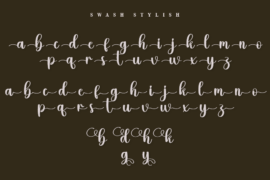 SWASH STYLISH
a b c d e f g h i j k l m n o
p q r s t u v w x y z
a b c d e f g h i j k l m n o
p q r s t u v w x y z
b d h k
g y